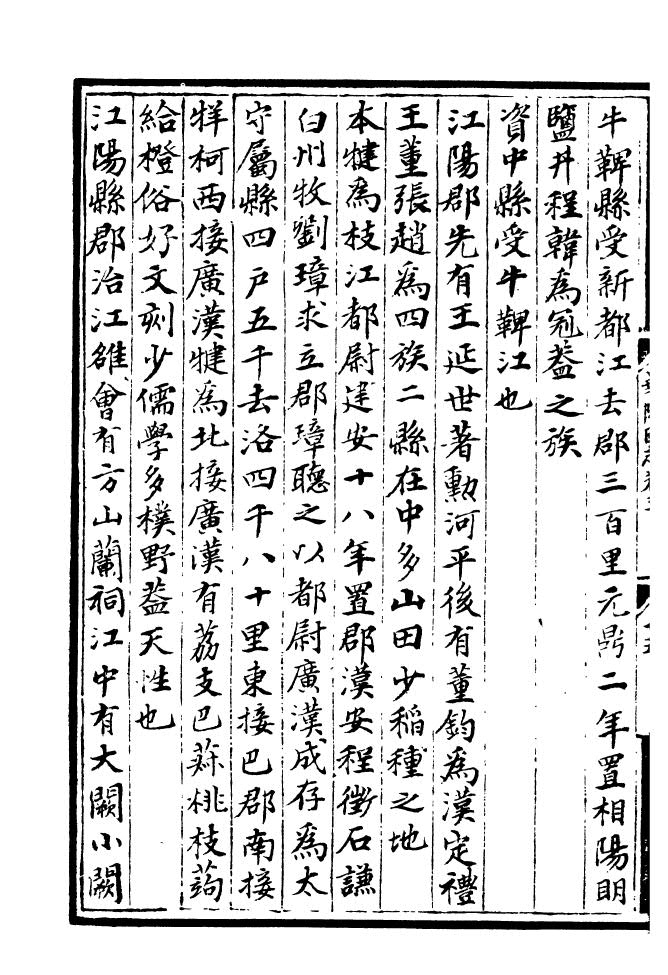 牛鞞縣受新都江去郡三百里元鼎二年置相陽明
鹽井程韓為冠葢之族
資中縣受牛鞞江也
江陽郡先有王延世著勳河平後有董鈞為漢定禮
王董張趙為四族二縣在中多山田少稻種之地
本犍為枝江都尉建安十八年置郡漢安程徵石謙
白州牧劉璋求立郡璋聽之以都尉廣漢成存為太
守屬縣四戶五千去洛四千八十里東接巴郡南接
牂柯西接廣漢犍為北接廣漢有荔支巴菻桃枝蒟
給橙俗好文刻少儒學多樸野葢天性也
江陽縣郡治江雒會有方山蘭祠江中有大闕小闕